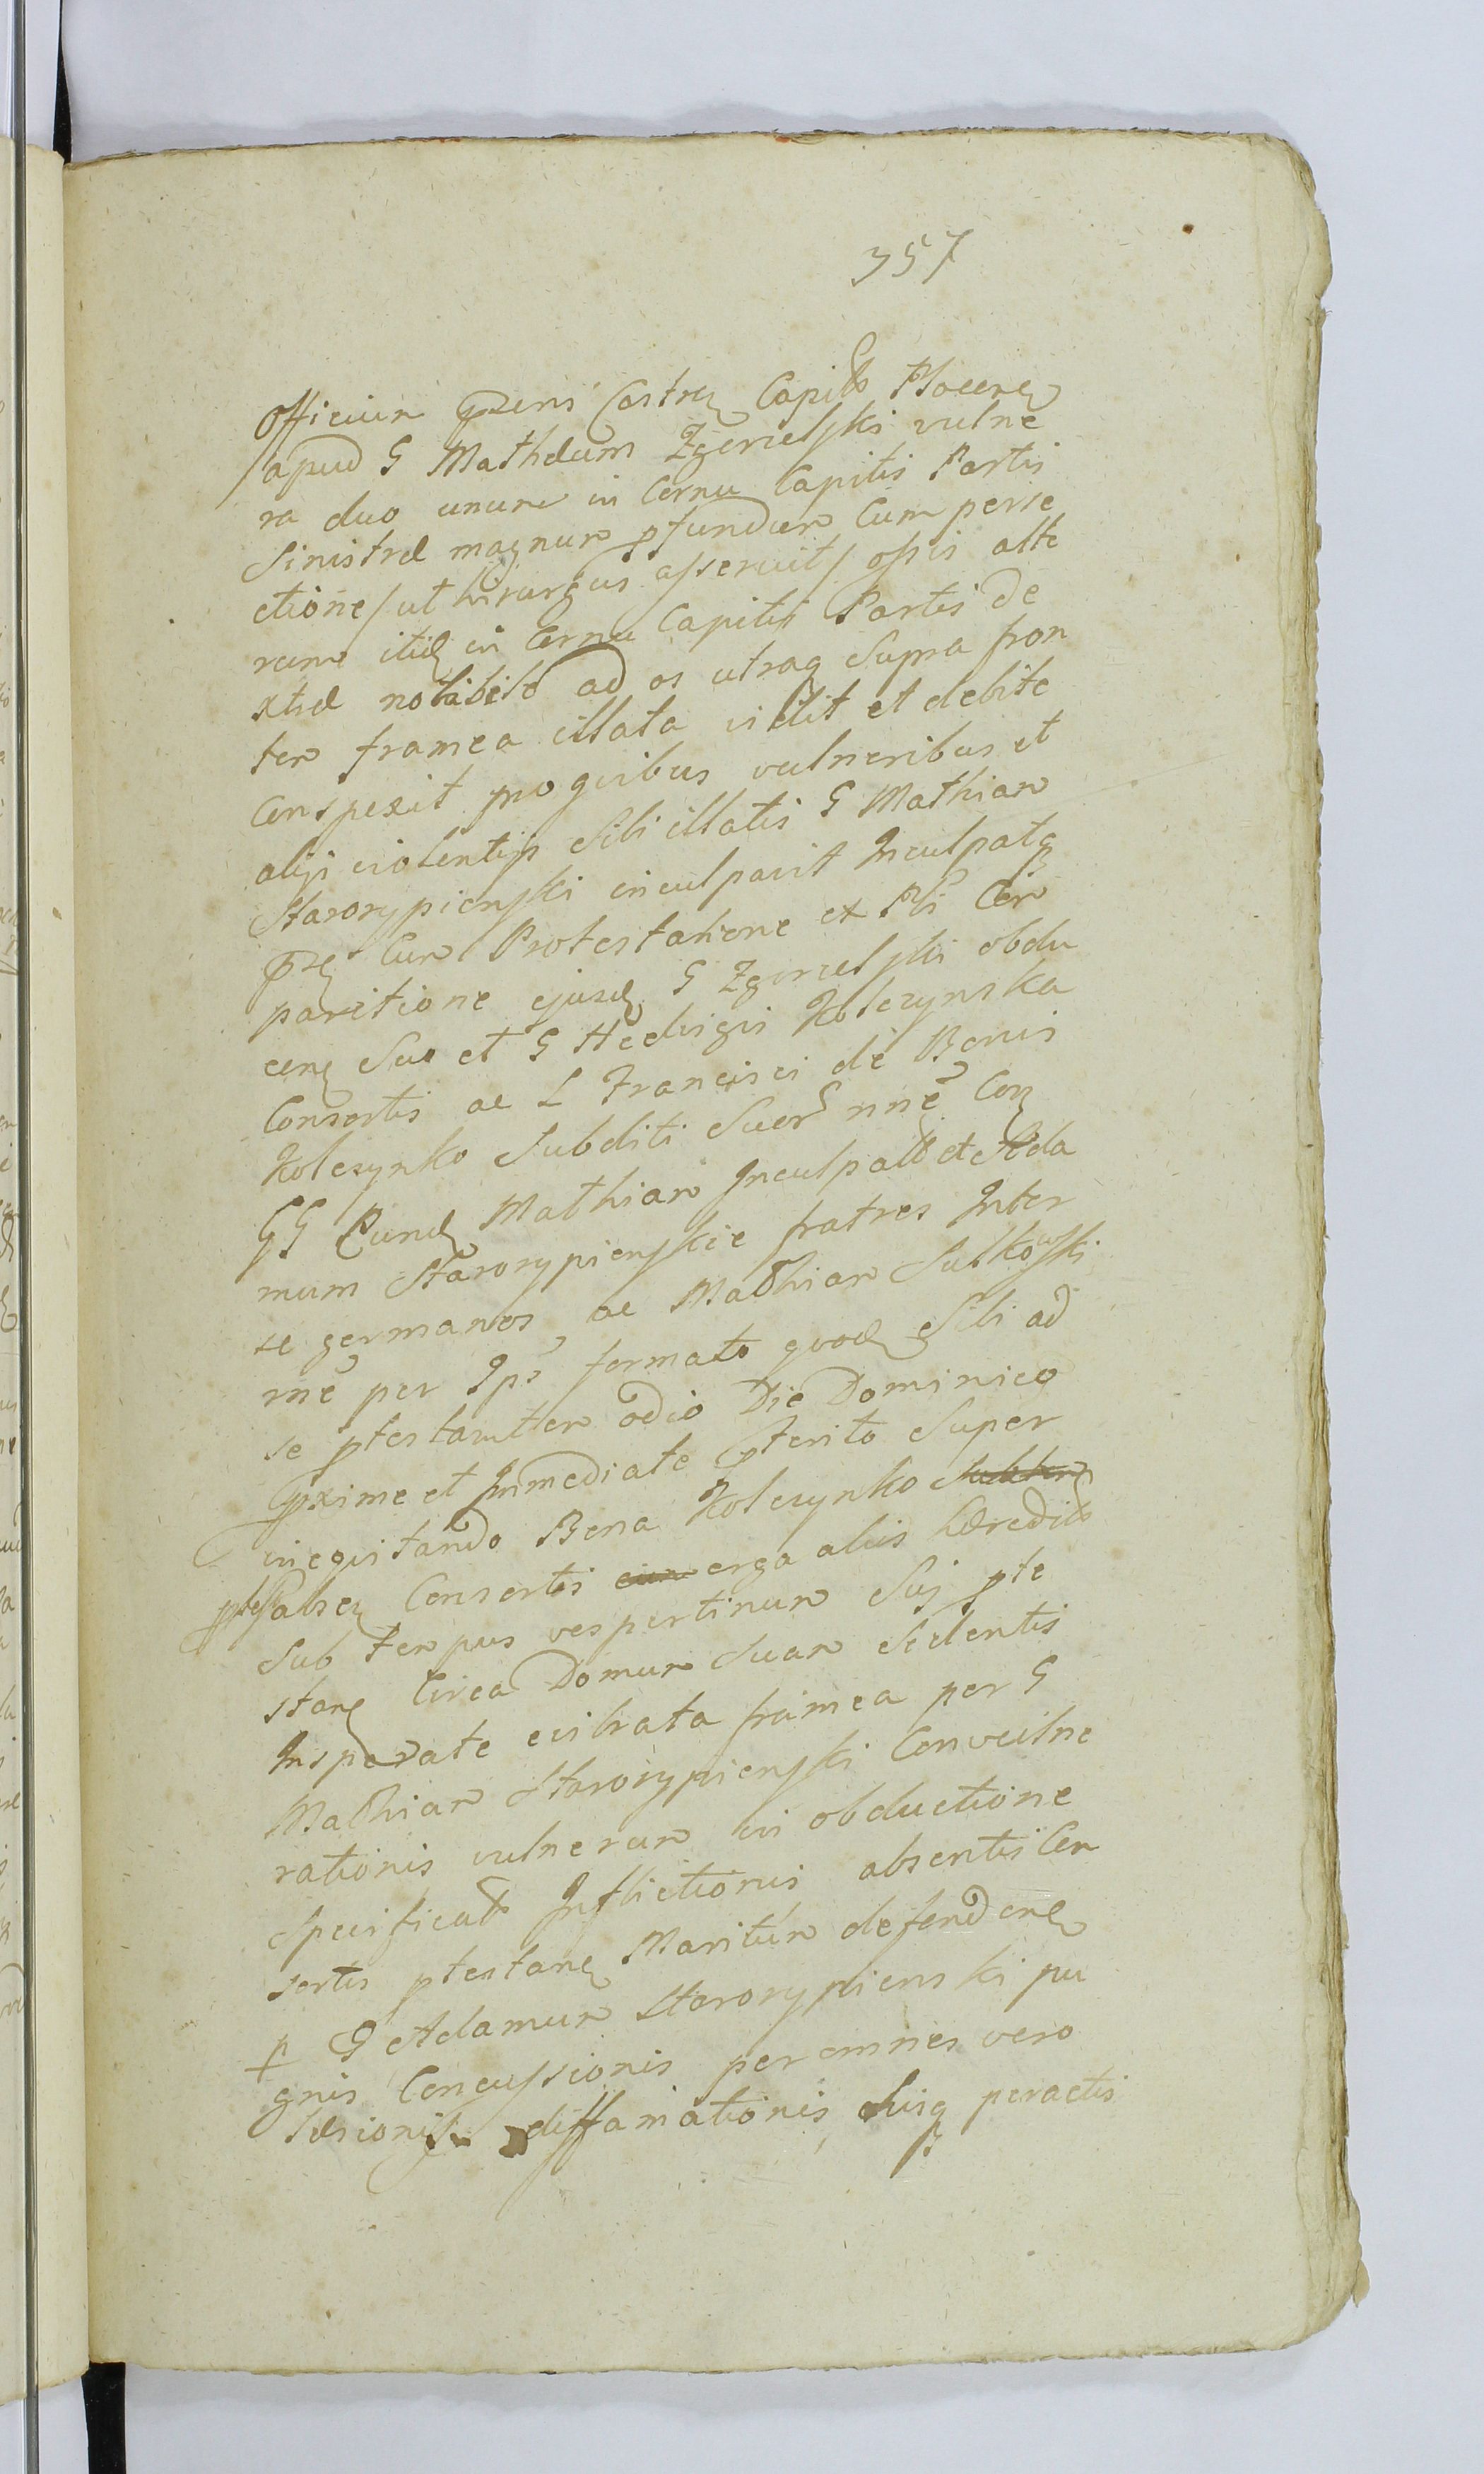 357
Officium pzens Castren Capitle Plocen
apud G Mathæum Zgorzelski vulne
ra duo unum in Cornu Capitis Partis
Sinistræ magnum pfundum Cum perse
ctione /ut hirurgus asseruit/ ossis alte
rum itid in Cornu Capitis Partis de
xtræ notabile ad os utraq Supra fron
tem framea illata vidit et debite
Conspexit pro quibus vulneribus et
alijs violentijs Sibi illatis G Mathiam
Starorypienski inculpavit Inculpatq
Cum Protestatione ex Com
paritione ejusd G Zgorzelski obdu
cen Suo et G Hedvigis Kolczynska
Consortis ac L Francisci de Bonis
Kolczynko Subditi Suor nne Con
GG eund Mathiam Inculpatu et Ada
mum Starorypienskie fratres Inter
se germanos ac Mathiam Sulkowski
me per Ips formato quod Sibi ad
se ptestantem odio Die Dominico
pxime et Immediate pterito Super
inequitando Bona Kolczynko
Consortis erga alios hæredit
Sub tempus vespertinum Suj pte
stan Circa Domum Suam Sedentis
Insperate evibrata framea per G
Mathiam Starorypienski Convulne
rationis vulnerum in obductione
Specificat Inflictionis absentis Con
sortis ptestan Maritum defenden
p G Adamum Starorypienski pu
gnis Concussionis per omnes vero
læsionis diffamationis Suisq peractis